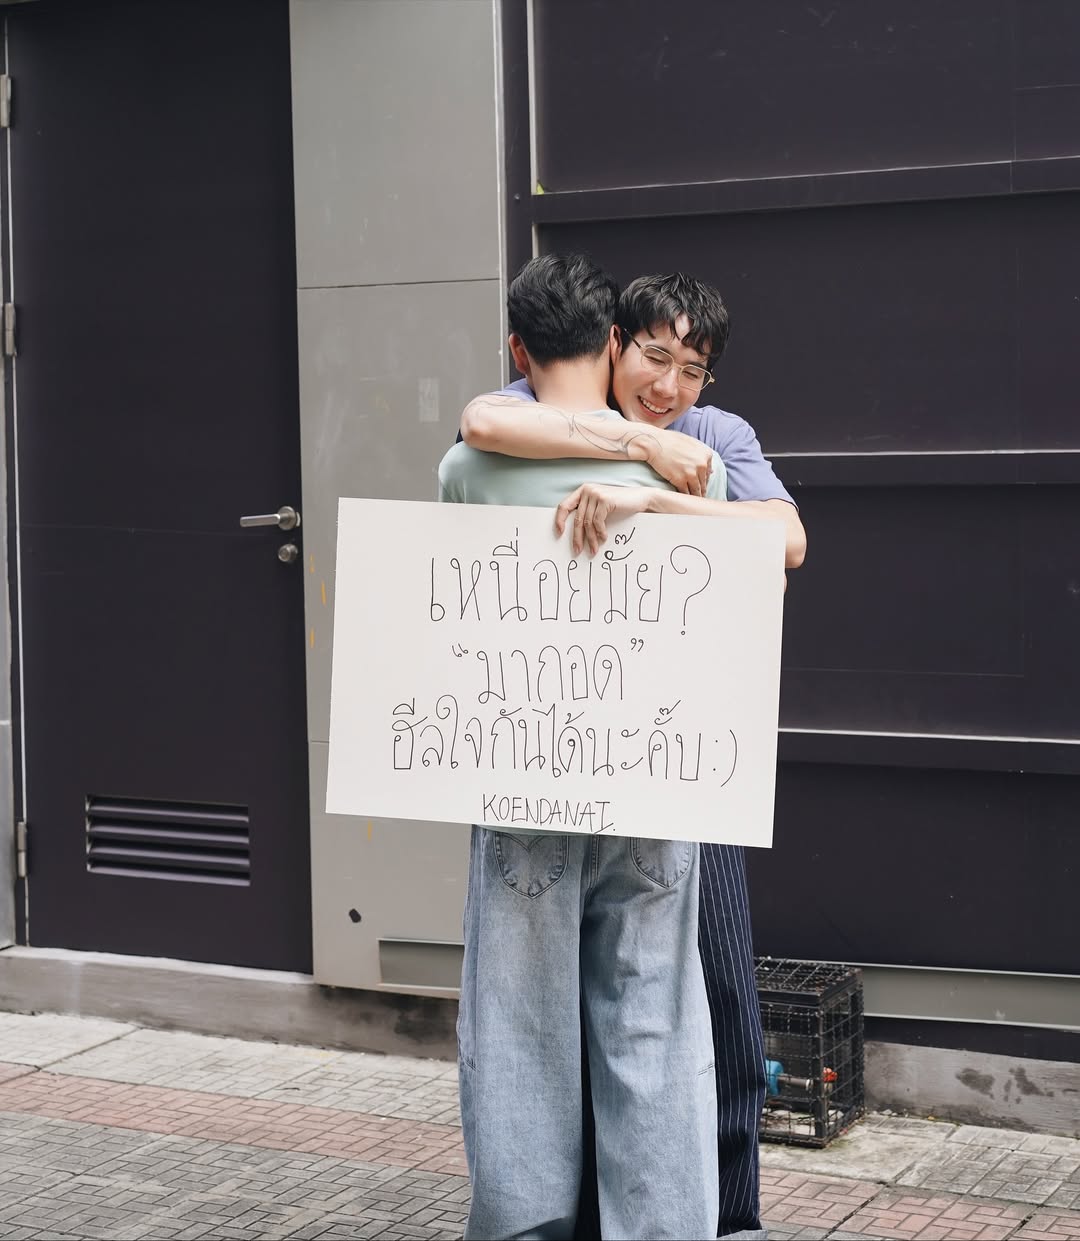 เหนื่อยมั๊ย?
"มากอด"
ฮีลใจกันได้นะคั๊บ:)
KOENDANAI.